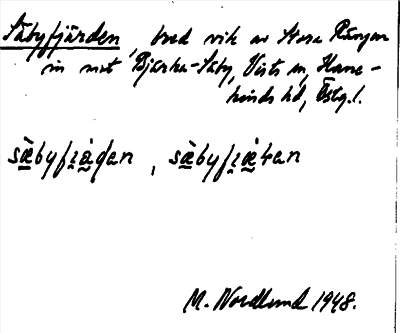 Säbyfjärden, bred vik av Stora Rängen
in mot Bjärka-Säby, Vists sn, Hane-
kinds hd, Östg.l.
sä̀byfjä̀ḍan, sä̀byfjä̀ran
M. Nordlund 1948.